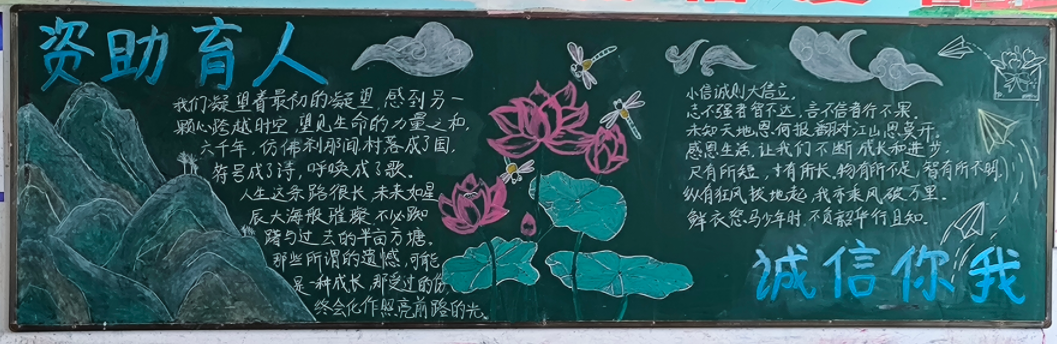 资助育人
我们凝望着最初的凝望,感到另一
颗心跨越时空,望见生命的力量之和,
六千年,仿佛刹那间村落成了国,
符号成了诗,呼唤成了歌。
人生这条路很长,未来如星
辰大海般璀璨,不必踟
蹰与过去的半亩方塘。
那些所谓的遗憾,可能
是一种成长,那受过的伤
终会化作照亮前路的光。
小信诚则大信立,
志不强者智不达,言不信者行不果,
未知天地恩何报,翻对江山思莫开。
感恩生活,让我们不断成长和进步。
尺有所短,寸有所长,物有所不足,智有所不明。
纵有狂风拔地起,我亦乘风破万里。
鲜衣怒马少年时,不负韶华行且知。
诚信你我